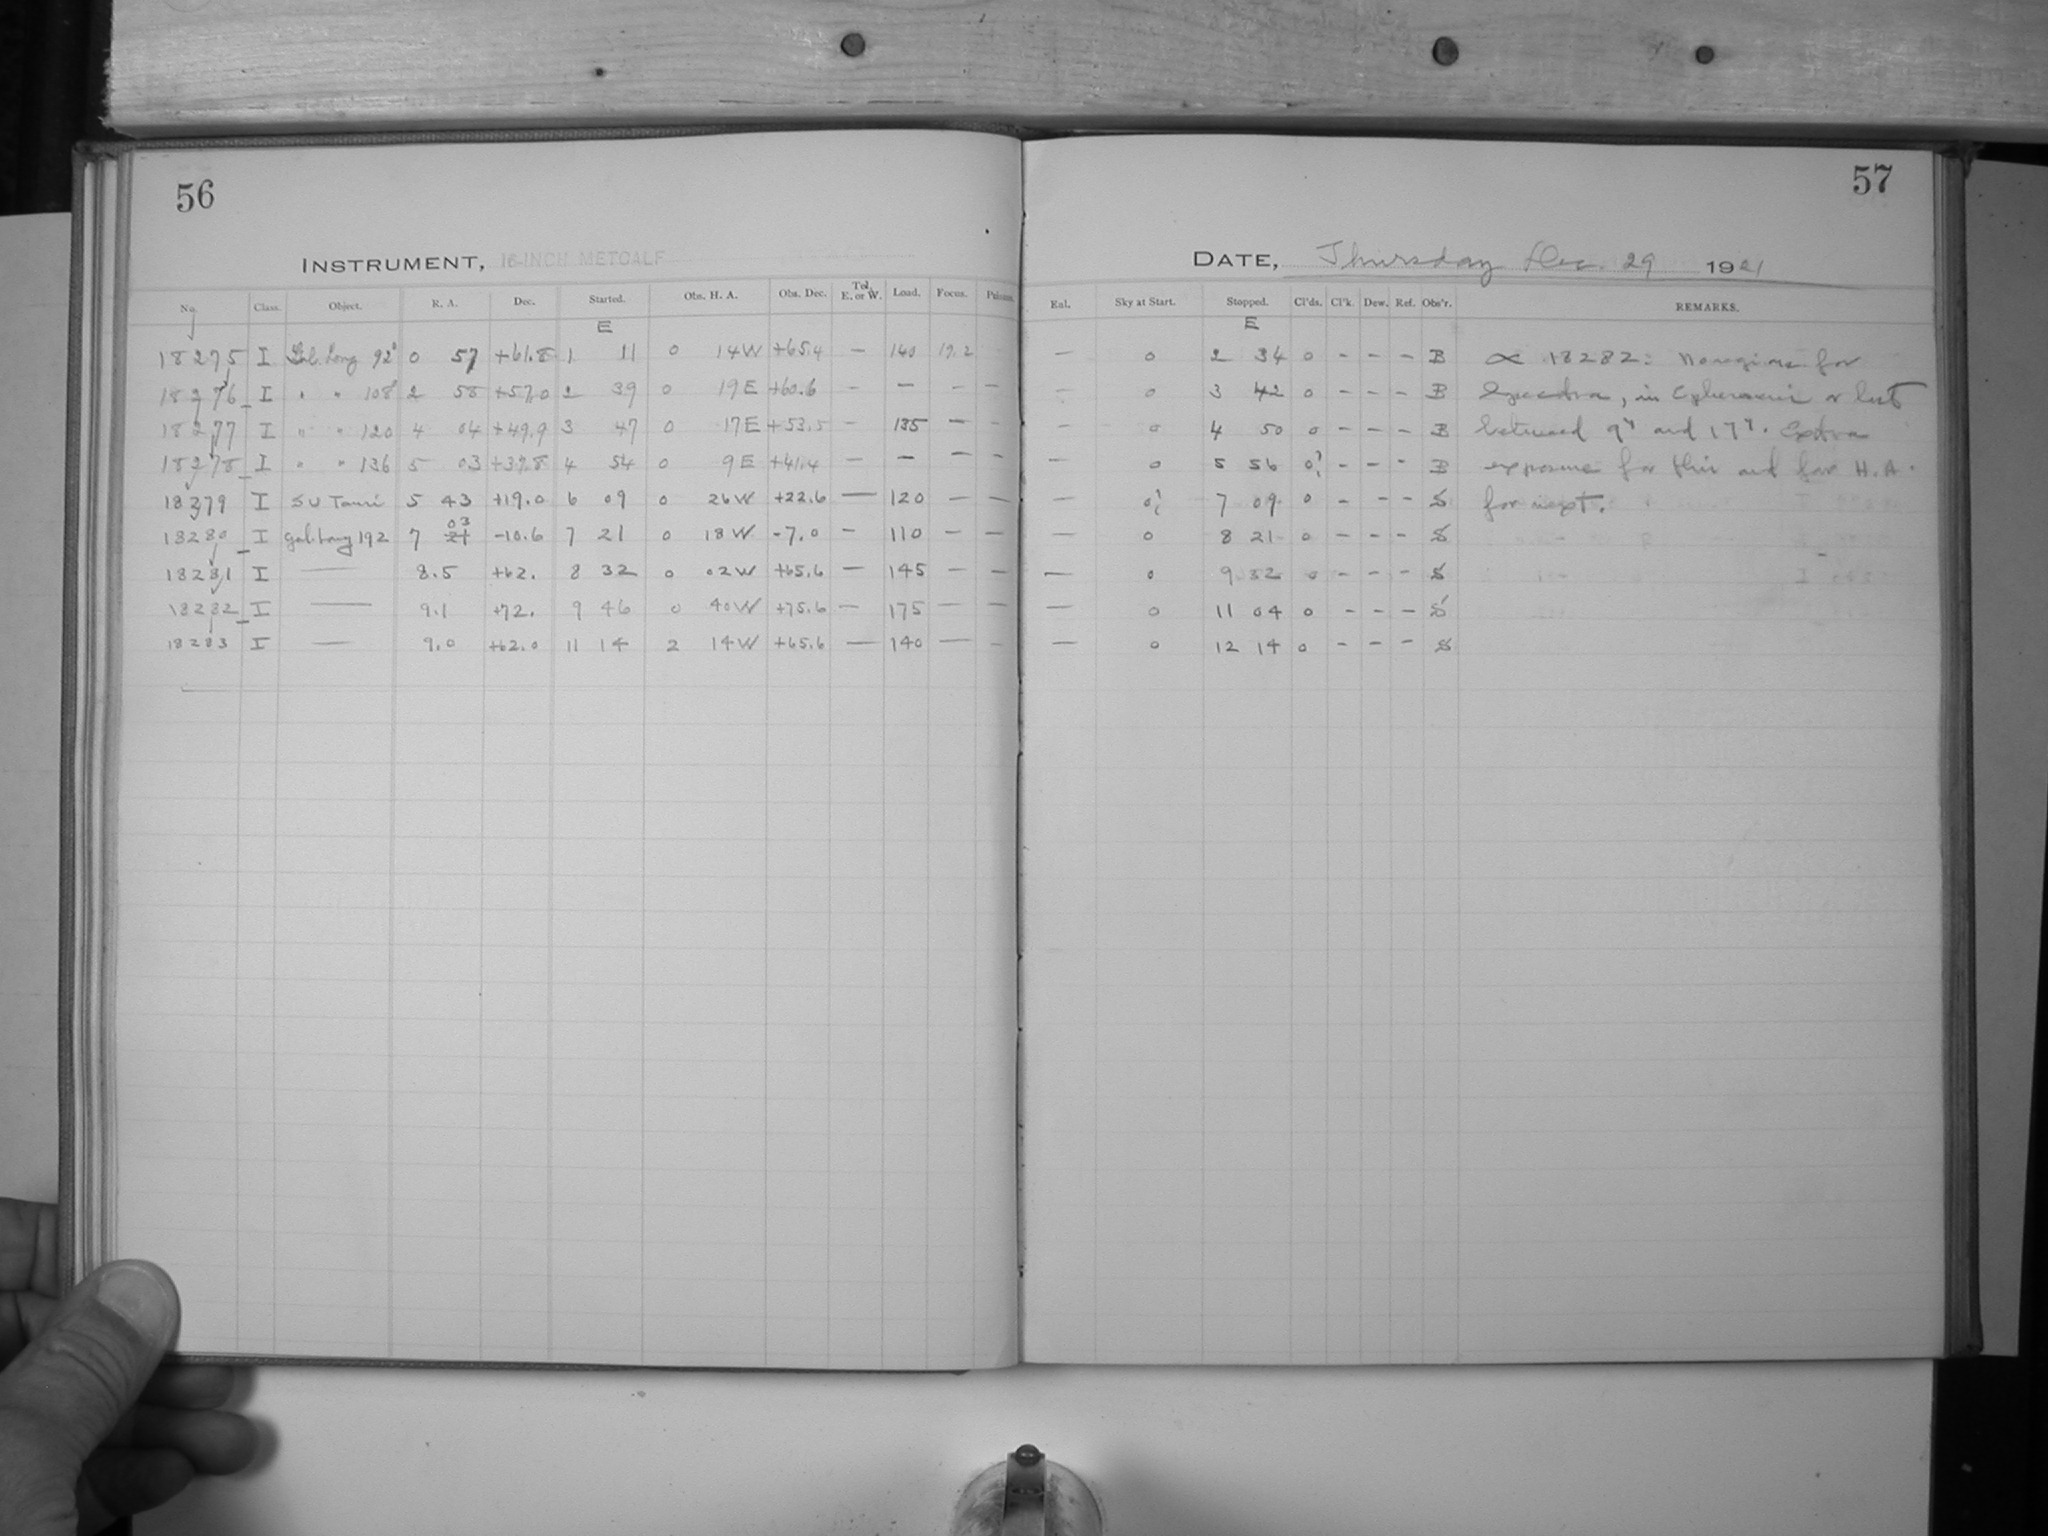 56
INSTRUMENT, 16-INCH METCALF
No. Class. Object. R. A. Dec. Started. Obs. H. A. Obs. Dec. Tel. E. or W. Load. Focus.
E
18275 I Gal. Long 92° 0 57 +61.8 1 11 0 14W +65.4 — 140 19.2
18276 I " " 108 2 58 +57.0 2 39 0 19E +60.6 — — – —
18277 I " " 120 4 04 +49.9 3 47 0 17E +53.5 — 135 — –
18278 I " " 136 5 03 +37.8 4 54 0 9E +41.4 — — — –
18279 I SU Tauri 5 43 +19.0 6 09 0 26W +22.6 — 120 — —
18280 I Gal. Long 192 7 03 21 -10.6 7 21 0 18W -7.0 — 110 — —
18281 I — 8.5 +62. 8 32 0 02W +65.6 — 145 — —
18282 I — 9.1 +72. 9 46 0 40W +75.6 — 175 — —
18283 I — 9.0 +62.0 11 14 2 14W +65.6 — 140 — –
57
DATE, Thursday Dec. 29 1921
Eal. Sky at Start. Stopped. Cl'ds. Cl'k. Dew. Ref. Obs'r. REMARKS.
E
— 0 2 34 0 - - - B ∝ 18282: No regions for
0 3 42 0 - - - B spectra, in Ephemeris or list
— 0 4 50 0 - - - B between 9h and 17h. Extra
— 0 5 56 0? - - - B exposure for this and for H.A.
— 0? 7 09 0 - - - S for next.
— 0 8 21 0 - - - S
— 0 9 32 0 - - - S
— 0 11 04 0 - - - S
— 0 12 14 0 - - - S